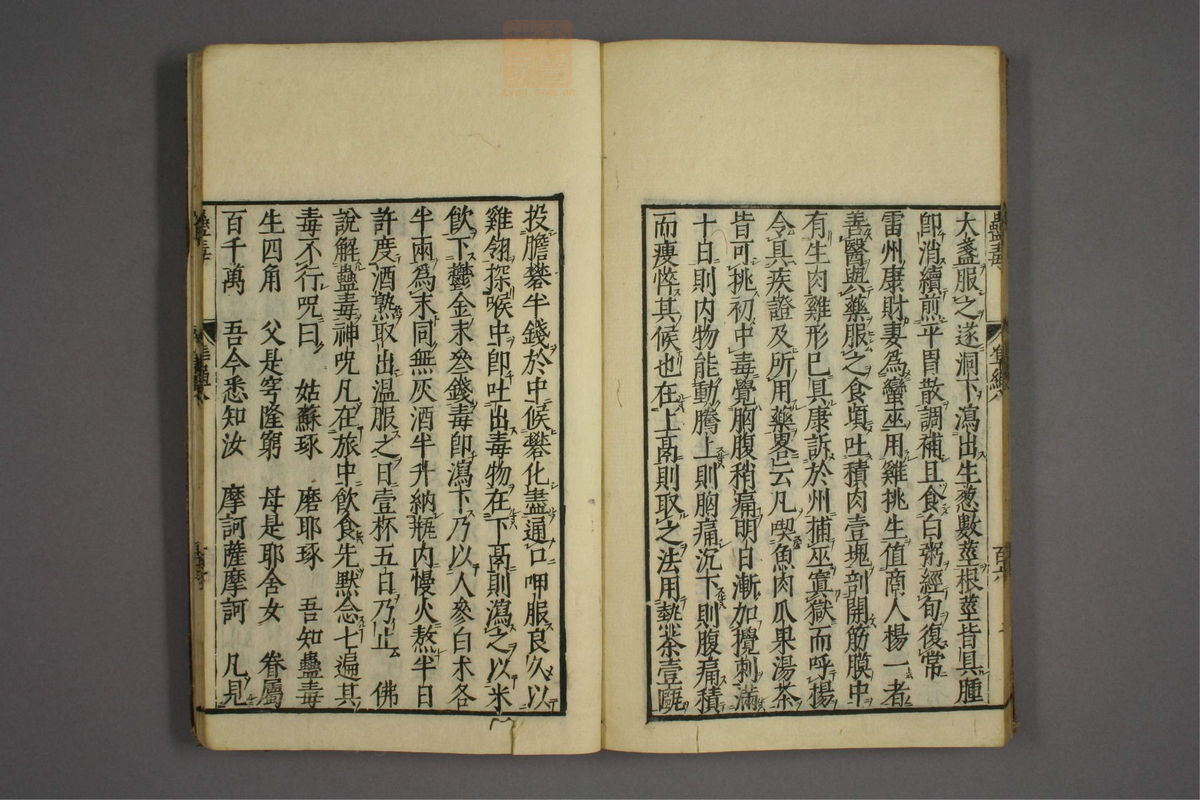 大盞服之遂洞下瀉出生葱數莖根莖皆具腫
即消續煎平胃散調補且食白粥經旬復常
雷州康財妻爲蠻巫用雞挑生值商人楊一者
善醫與藥服之食頃吐積肉壹塊剖開筋膜中
有生肉雞形已具康訴於州捕巫寘獄而呼揚
令具疾證及所用藥畧云凡喫魚肉瓜果湯茶
皆可挑初中毒覺胸腹稍痛明日漸加攪刺滿
十日則内物能動騰上則胸痛沉下則腹痛積
而瘦悴其候也在上鬲則取之法用𤍠茶壹甌
投膽礬半錢於中候礬化盡通口呷服良久以
雞翎探喉中即吐出毒物在下鬲則瀉之以米
飲下鬱金末叁錢毒即瀉下乃以人參白术各
半兩為末同無灰酒半升納瓶内慢火熬半日
許度酒熟取出温服之日壹杯五日乃止　佛
說解蠱毒神呪凡在旅中飲食先默念七遍其
毒不行呪曰　姑蘇琢　磨耶琢　吾知蠱毒
生四角　父是穹隆窮　母是耶舍女　眷屬
百千萬　吾今悉知汝　摩訶薩摩訶　凡見
蠱毒
蠱毒